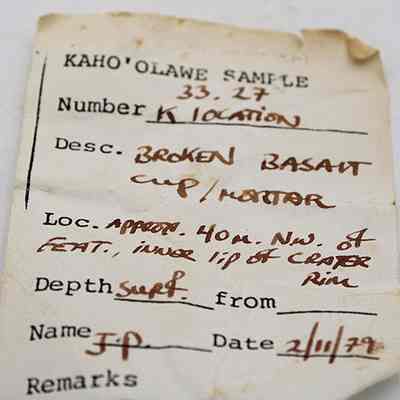 KAHO'OLAWE SAMPLE
33.27
Number K LOCATION
Desc. BROKEN BASALT
CUP/MORTAR
Loc. APPROX. 40m. NW. of
FEAT., INNER lip of CRATER
RIM
Depth SURF. from
Name J.P. Date 2/11/79
Remarks